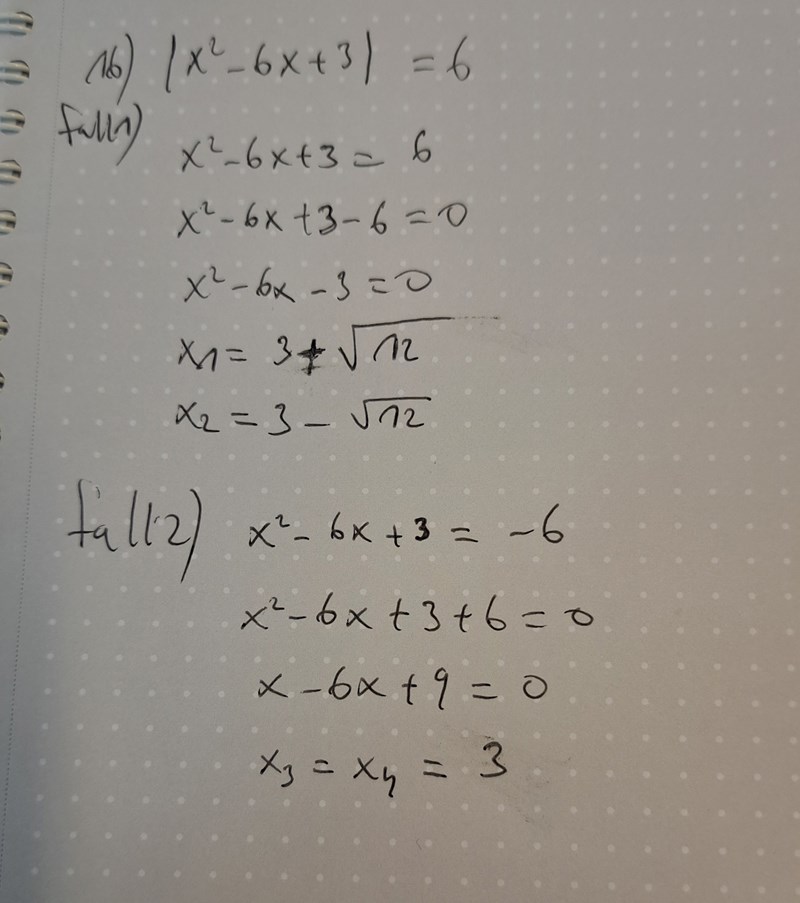 16) |x² - 6x + 3| = 6
Fall 1)
x² - 6x + 3 = 6
x² - 6x + 3 - 6 = 0
x² - 6x - 3 = 0
x₁ = 3 + √12
x₂ = 3 - √12
Fall 2) x² - 6x + 3 = -6
x² - 6x + 3 + 6 = 0
x - 6x + 9 = 0
x₃ = x₄ = 3